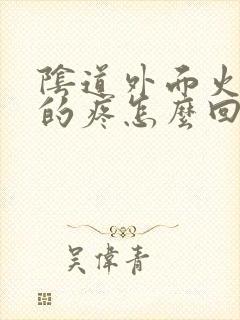 陰道外而火
的疼怎麼回
吴偉青